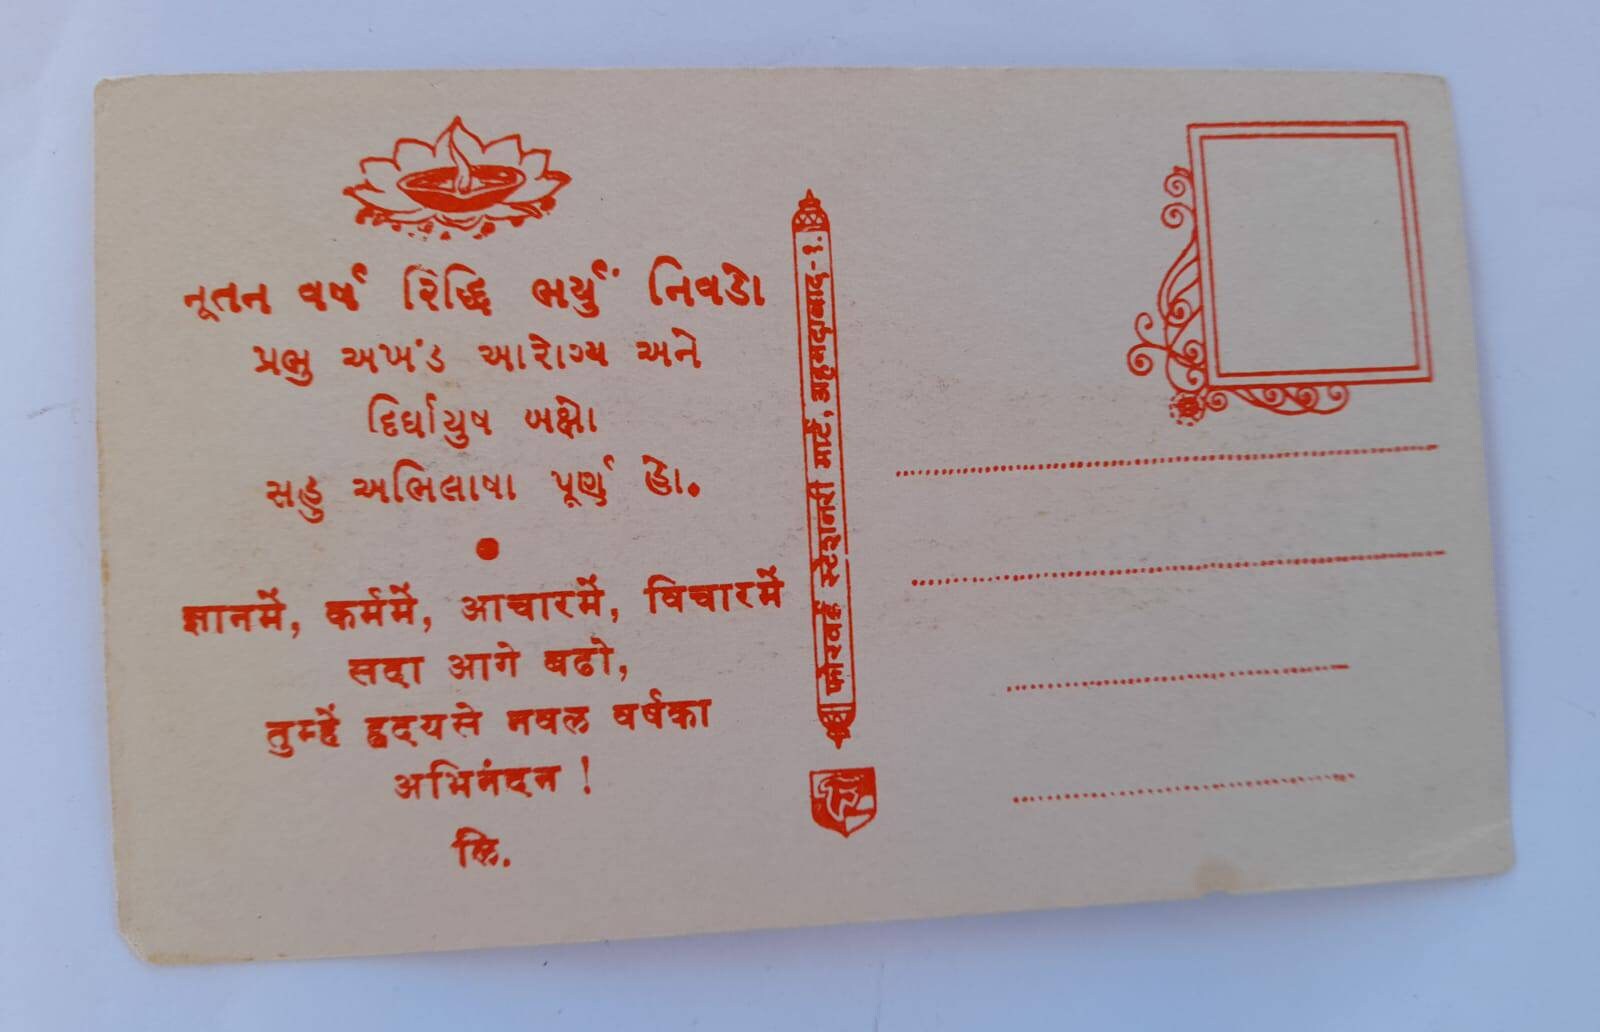 નૂતન વર્ષ રિદ્ધિ ભર્યું નિવડો
પ્રભુ અખંડ આરોગ્ય અને
દિર્ઘાયુષ બક્ષો
સહુ અભિલાષા પૂર્ણ હો.
ज्ञानमें, कर्ममें, आचारमें, विचारमें
सदा आगे बढो,
तुम्हें हृदयसे नवल वर्षका
अभिनंदन !
लि.
फोरवर्ड स्टेशनरी मार्ट, अहमदाबाद-१.